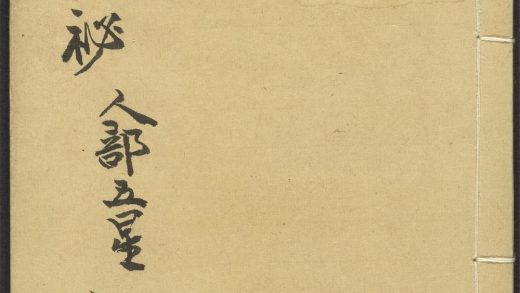 祕
人部五星